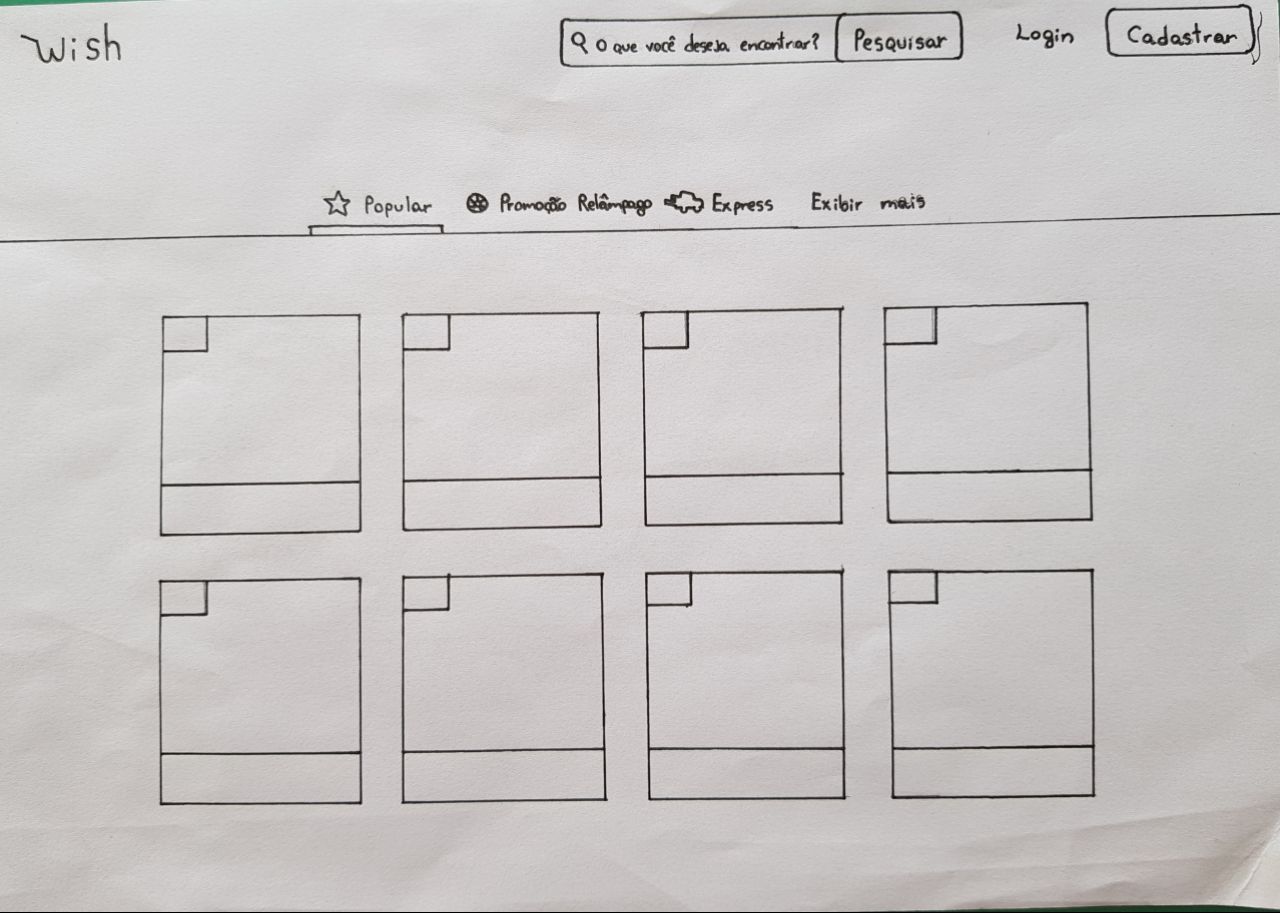 Wish
O que você deseja encontrar? Pesquisar Login Cadastrar
Popular Promoção Relâmpago Express Exibir mais